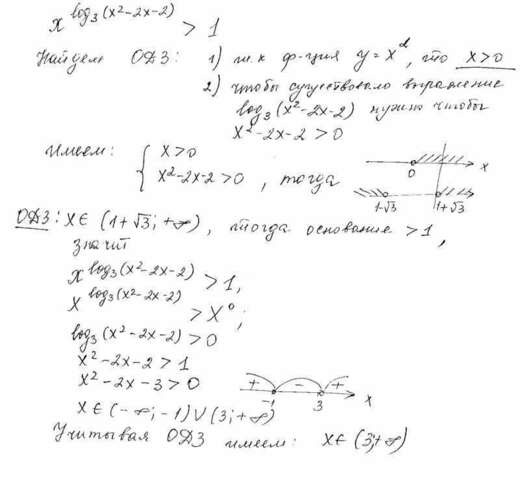 x^{log_3(x²-2x-2)} > 1
Найдем ОДЗ: 1) т.к ф-ция y = x^α, то x>0
2) чтобы существовало выражение
log_3(x²-2x-2) нужно чтобы
x²-2x-2>0
Имеем: { x>0
x²-2x-2>0, тогда
0 x
1-√3 1+√3
ОДЗ: x∈(1+√3; +∞), тогда основание >1,
значит
x^{log_3(x²-2x-2)} > 1,
x^{log_3(x²-2x-2)} > x^0;
log_3(x²-2x-2)>0
x²-2x-2>1
x²-2x-3>0
+ - +
-1 3 x
x∈(-∞; -1)∪(3; +∞)
Учитывая ОДЗ имеем: x∈(3; +∞)